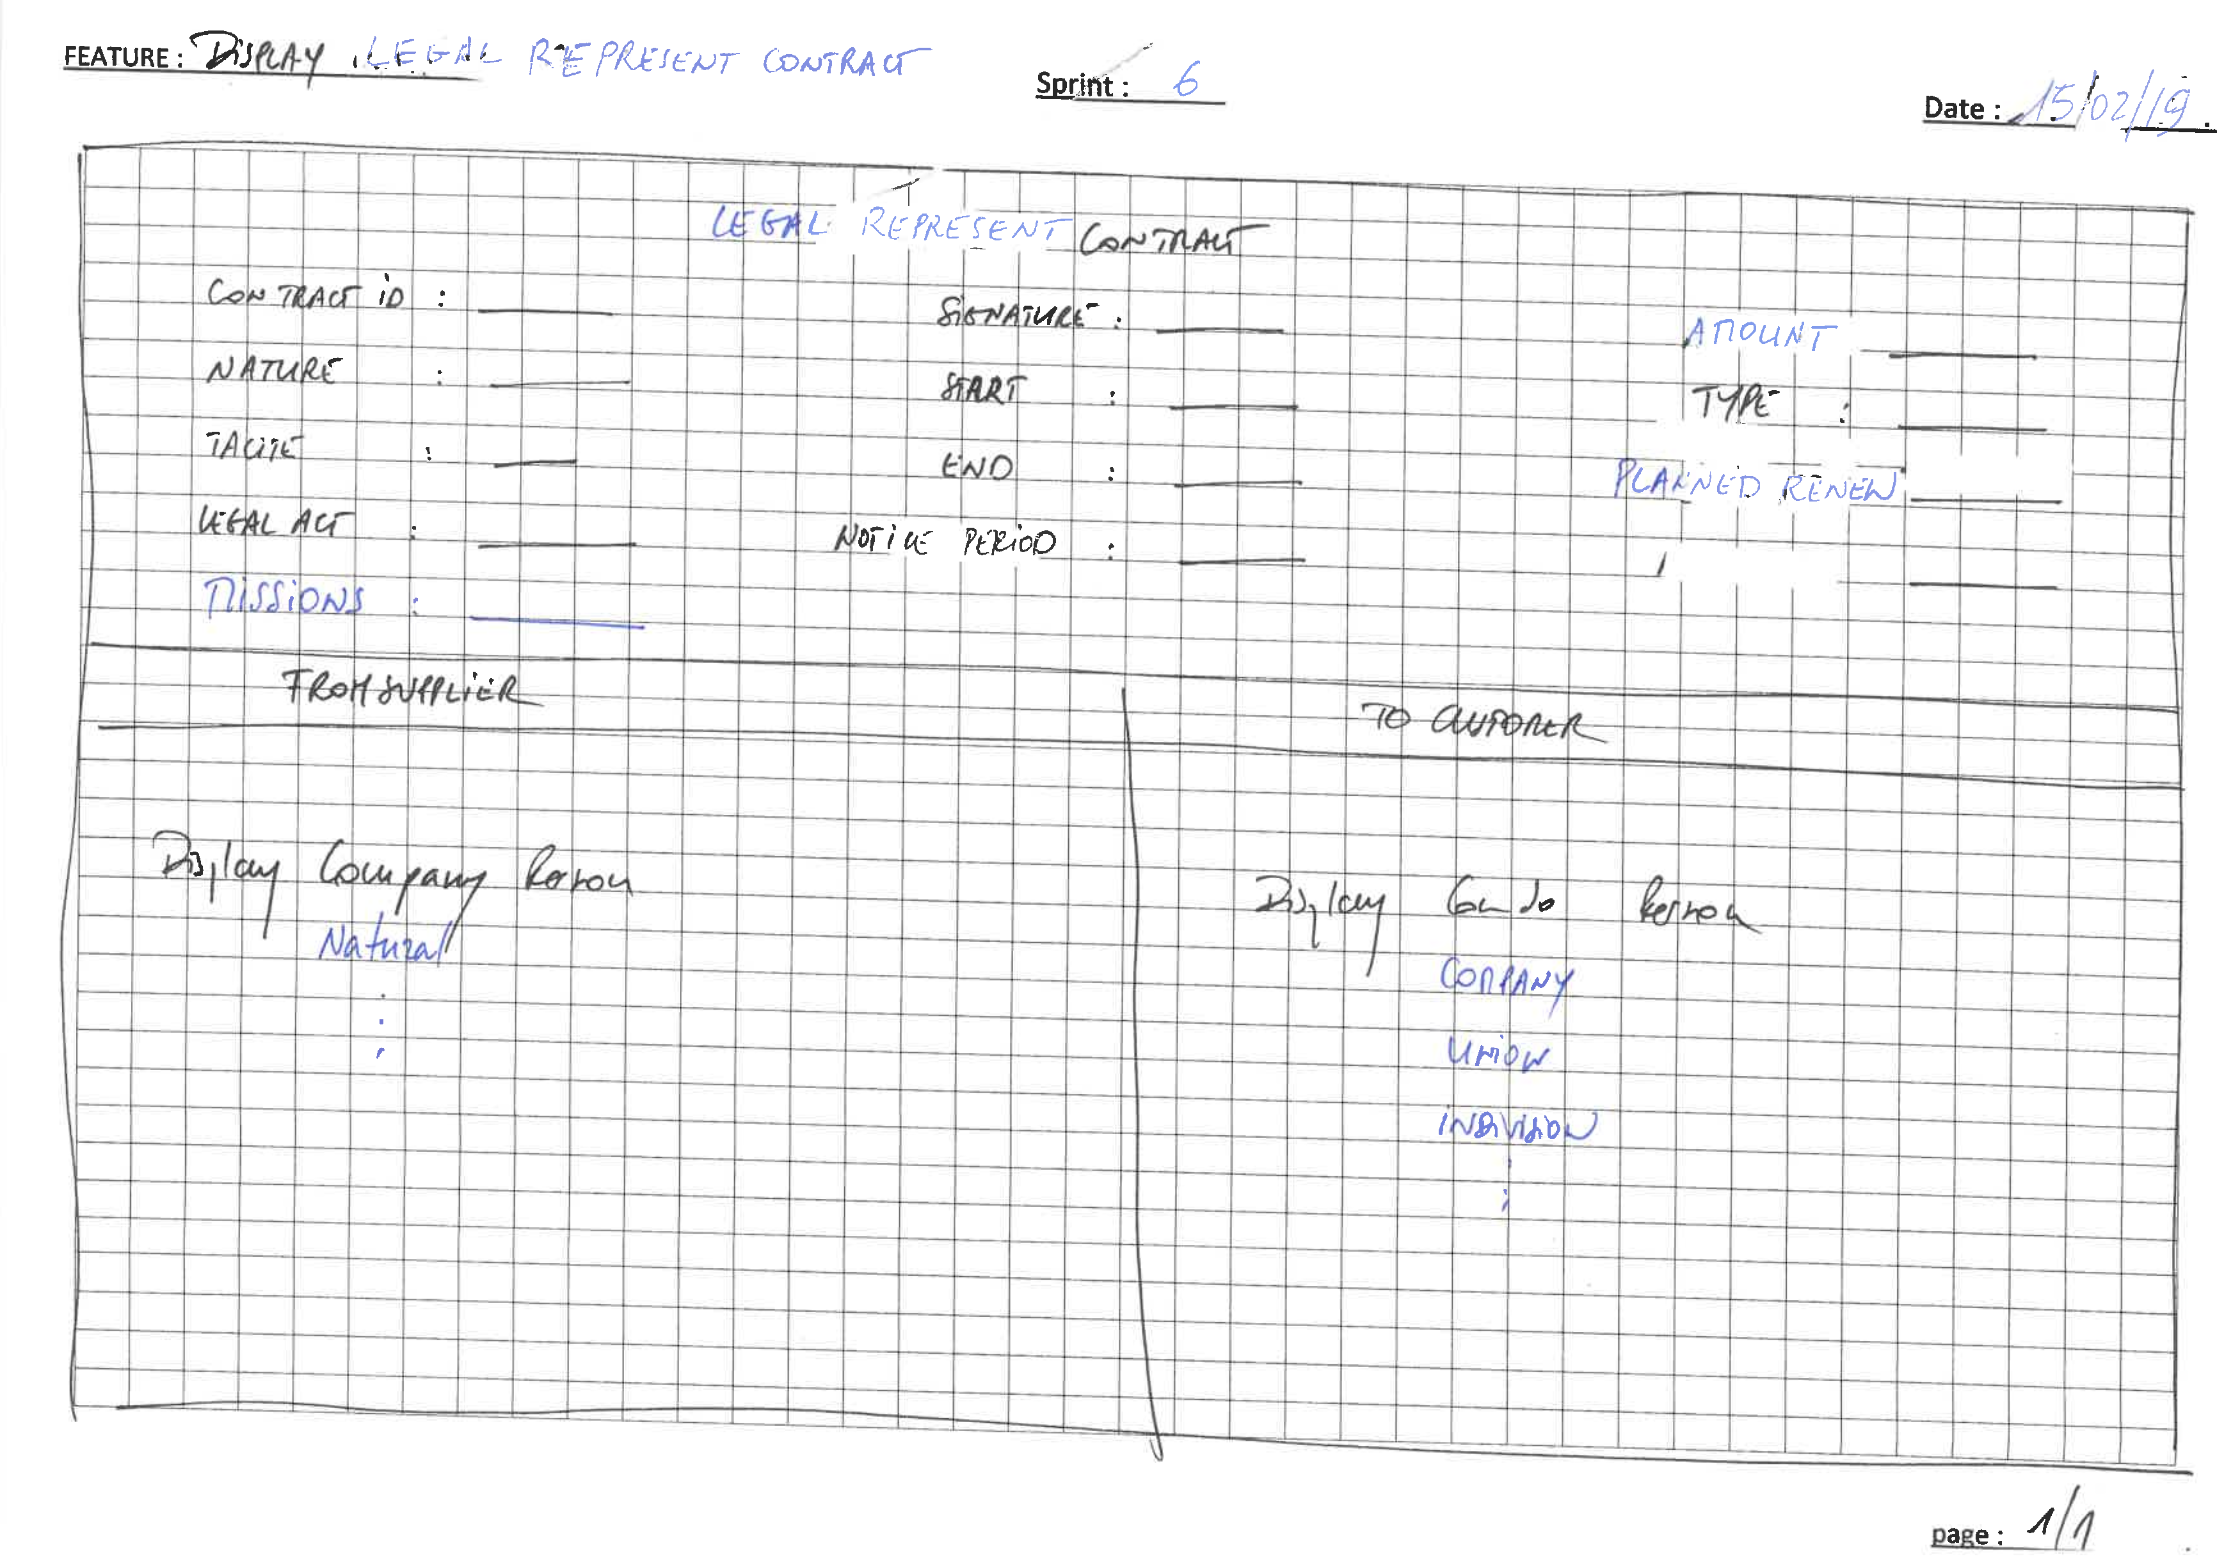 FEATURE : DISPLAY LEGAL REPRESENT CONTRACT
Sprint : 6
Date : 15/02/19
LEGAL REPRESENT CONTRACT
CONTRACT iD :
SIGNATURE :
AMOUNT
NATURE :
START :
TYPE :
TACITE :
END :
PLANNED RENEW
LEGAL ACT :
NOTICE PERIOD :
MISSIONS :
FROM SUPPLIER
TO CUSTOMER
Display Company Person
Natural
Display Condo Person
COMPANY
UNION
INDIVISION
page : 1/1